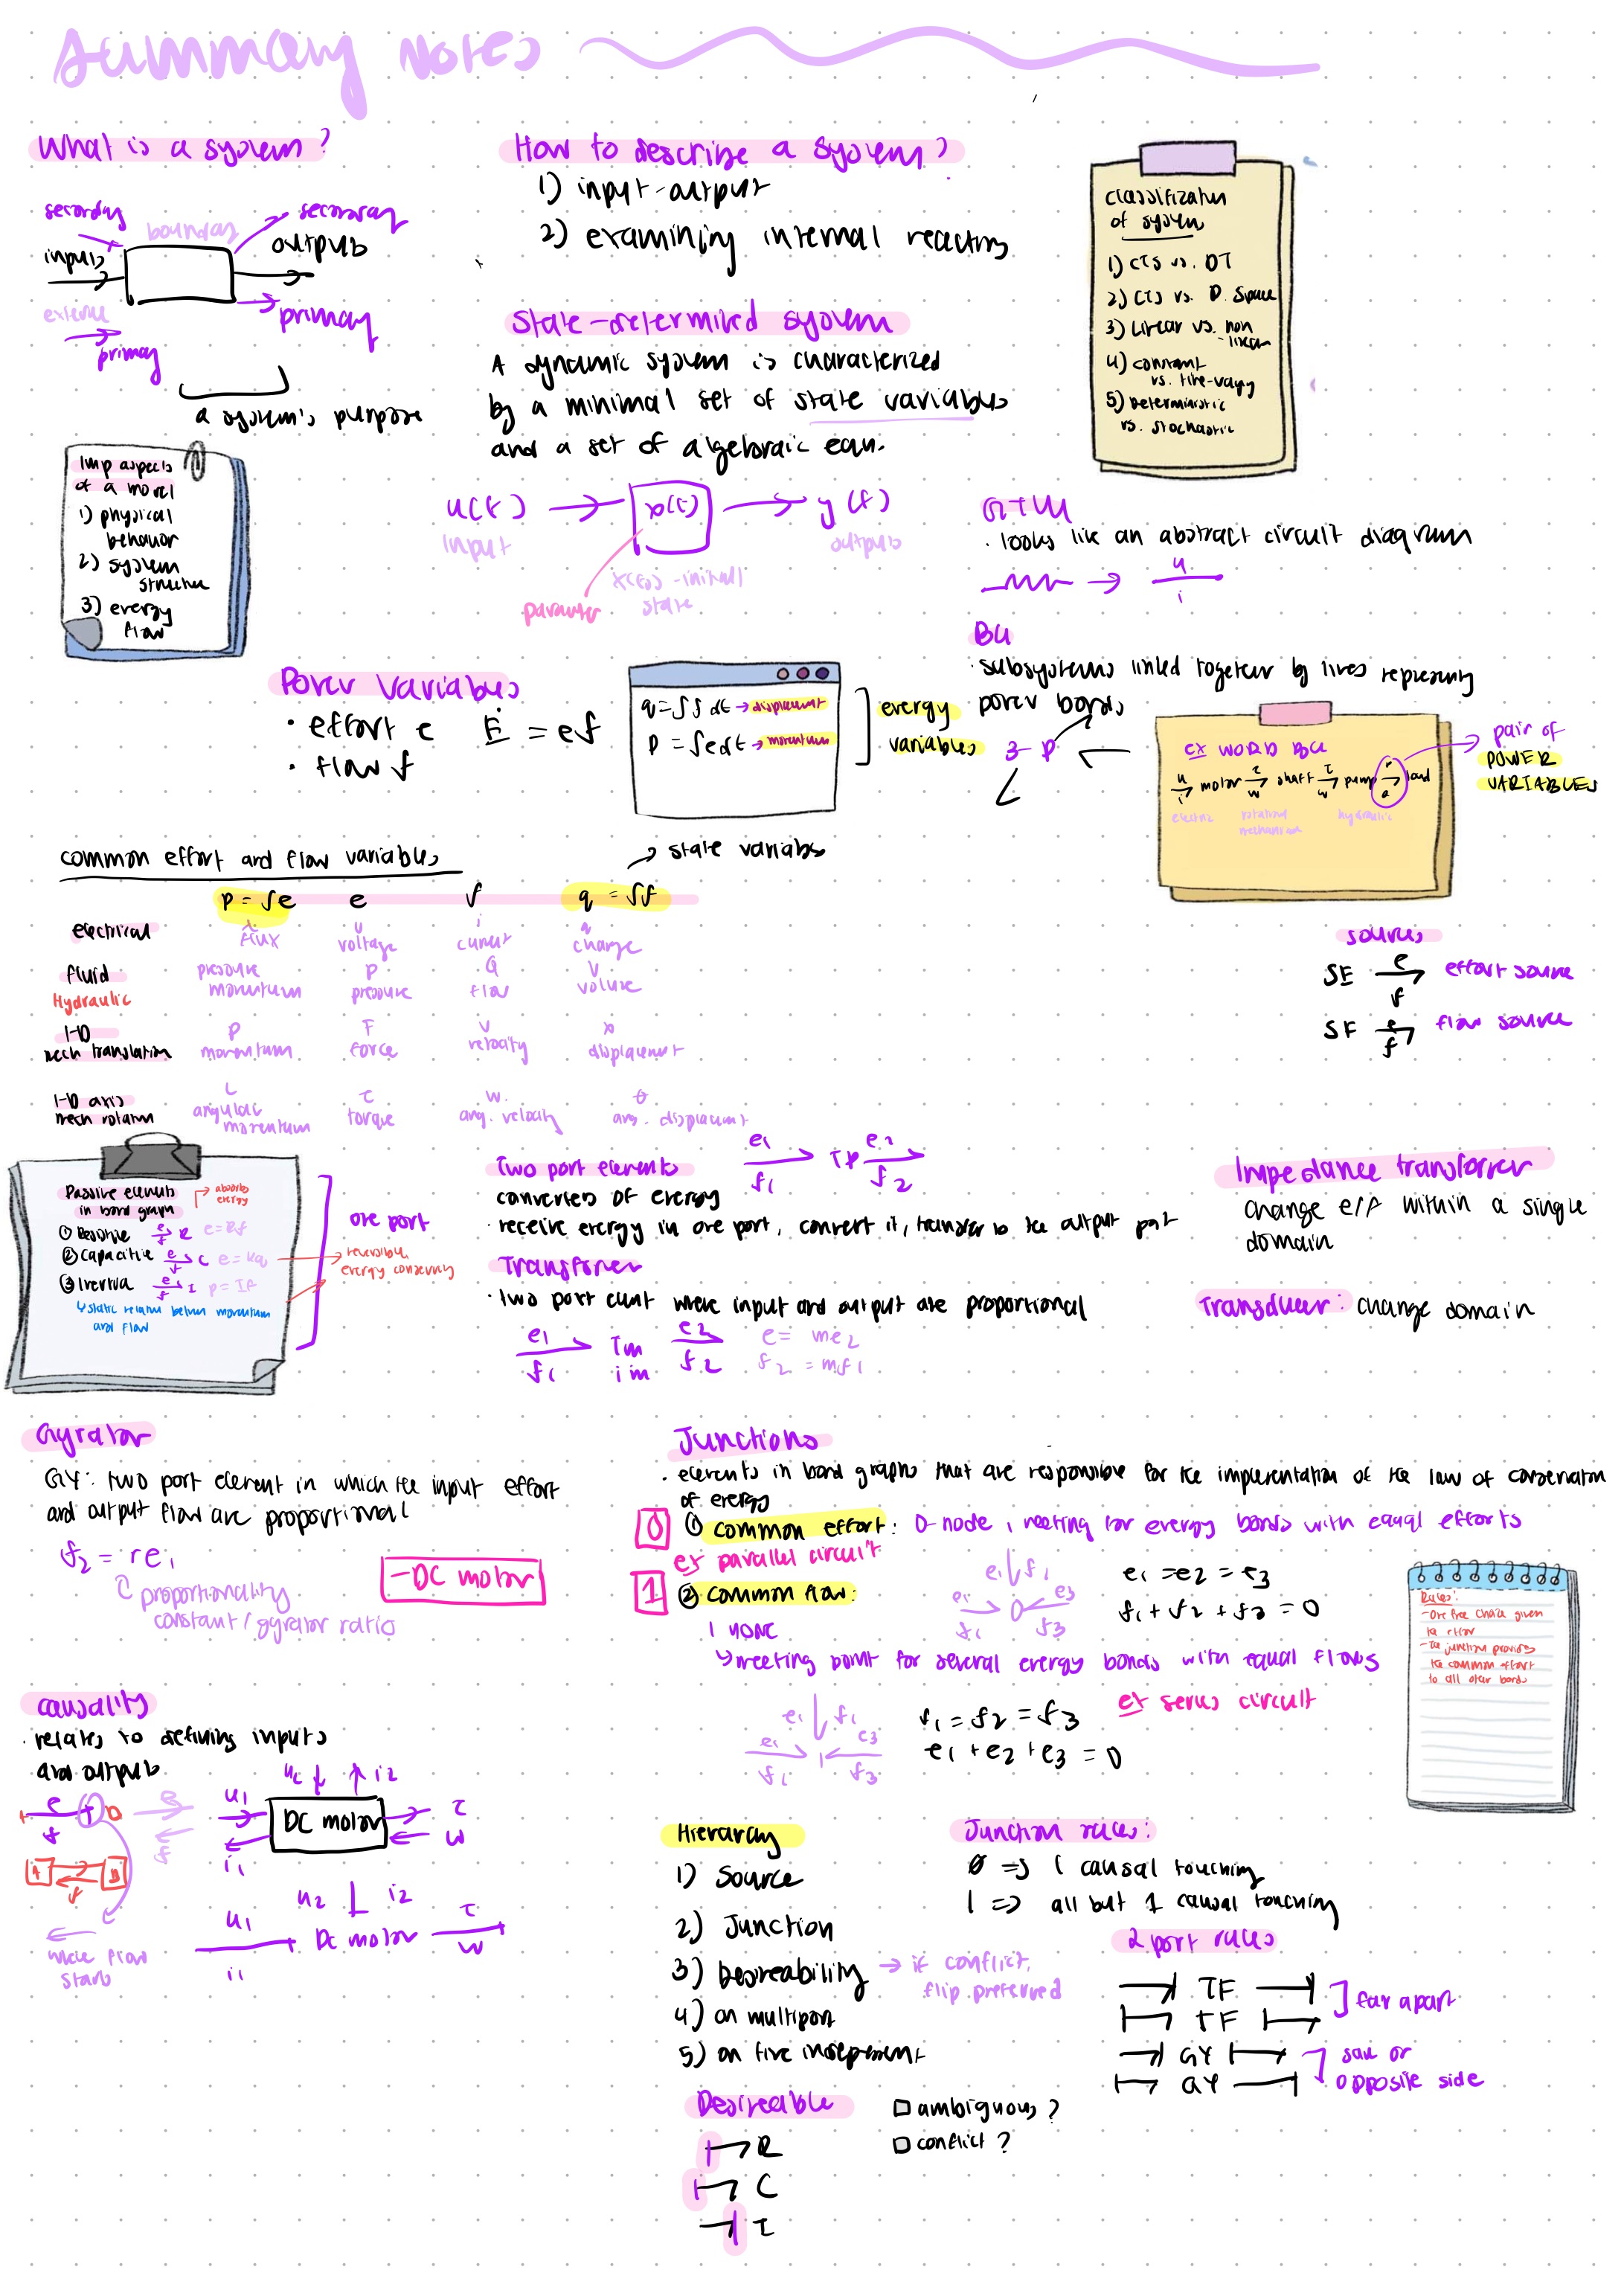 Summary Notes
What is a system?
secondary
boundary
secondary
inputs
outputs
externe
primary
primary
a system's purpose
How to describe a system?
1) input-output
2) examining internal reactions
State-determined system
A dynamic system is characterized
by a minimal set of state variables
and a set of algebraic eqn.
u(t)
x(t)
y(t)
input
outputs
x(t₀) - initial
state
parameter
Classification
of system
1) CTS vs. DT
2) CTS vs. D. Space
3) Linear vs. non
-linear
4) constant
vs. time-varying
5) Deterministic
vs. stochastic
Imp aspects
of a model
1) physical
behavior
2) system
structure
3) energy
flow
· looks like an abstract circuit diagram
u
i
BG
· subsystems linked together by lines representing
power bonds
Power Variables
· effort e Ė = ef
· flow f
q = ∫f dt → displacement
p = ∫e dt → momentum
energy
variables
ex WORD BG
u motor τ shaft τ pump P load
i ω ω Q
electric rotational hydraulic
mechanical
pair of
POWER
VARIABLES
common effort and flow variables
→ state variabs
p = ∫e e f q = ∫f
electrical λ flux u voltage i current q charge
fluid
Hydraulic
pressure momentum P pressure Q flow V volume
1-D
mech translation
p momentum F force v velocity x displacement
1-D axis
mech rotation
L angular momentum τ torque ω ang. velocity θ ang. displacement
sources
SE e f effort source
SF e f flow source
Passive elements
in bond graph
absorbs
energy
① Resistive e f R e = Rf
② Capacitive e f C e = kq
③ Inertia e f I p = If
↳ static relation between momentum
and flow
one port
reversible,
energy conserving
Two port elements
e₁ f₁ TP e₂ f₂
converters of energy
· receive energy in one port, convert it, transfer to the output port
Transformer
· two port elmt where input and output are proportional
e₁ Tm e₂ e = me₂
f₁ i m f₂ f₂ = mf₁
Impedance transformer
change e/f within a single
domain
Transducer: change domain
Gyrator
GY: two port element in which the input effort
and output flow are proportional
f₂ = re₁
proportionality
constant / gyrator ratio
- DC motor
Junctions
· elements in bond graphs that are responsible for the implementation of the law of conservation
of energy
0 ① common effort: 0-node, meeting for energy bonds with equal efforts
ex parallel circuit
e₁ f₁
e₁ 0 e₃
f₁ f₃
e₁ = e₂ = e₃
f₁ + f₂ + f₃ = 0
1 ② common flow:
1 node
↳ meeting point for several energy bonds with equal flows
e₁ f₁
e₁ 1 e₃
f₁ f₃
f₁ = f₂ = f₃
e₁ + e₂ + e₃ = 0
ex series circuit
Rules:
- One free choice given
- The junction provides
the common effort
to all other bonds
causality
· relates to defining inputs
and outputs
e
f
e
f
A B
f
where flow
starts
u₂ i₂
u₁ DC motor τ
i₁ ω
u₂ i₂
u₁ DC motor τ
i₁ ω
Hierarchy
1) Source
2) Junction
3) Desireability → if conflict,
flip preferred
4) on multiport
5) on five independent
Junction rules:
0 => 1 causal touching
1 => all but 1 causal touching
2 port rules
TF
TF
far apart
GY
GY
same or
opposite side
Desireable
R
C
I
ambiguous?
conflict?